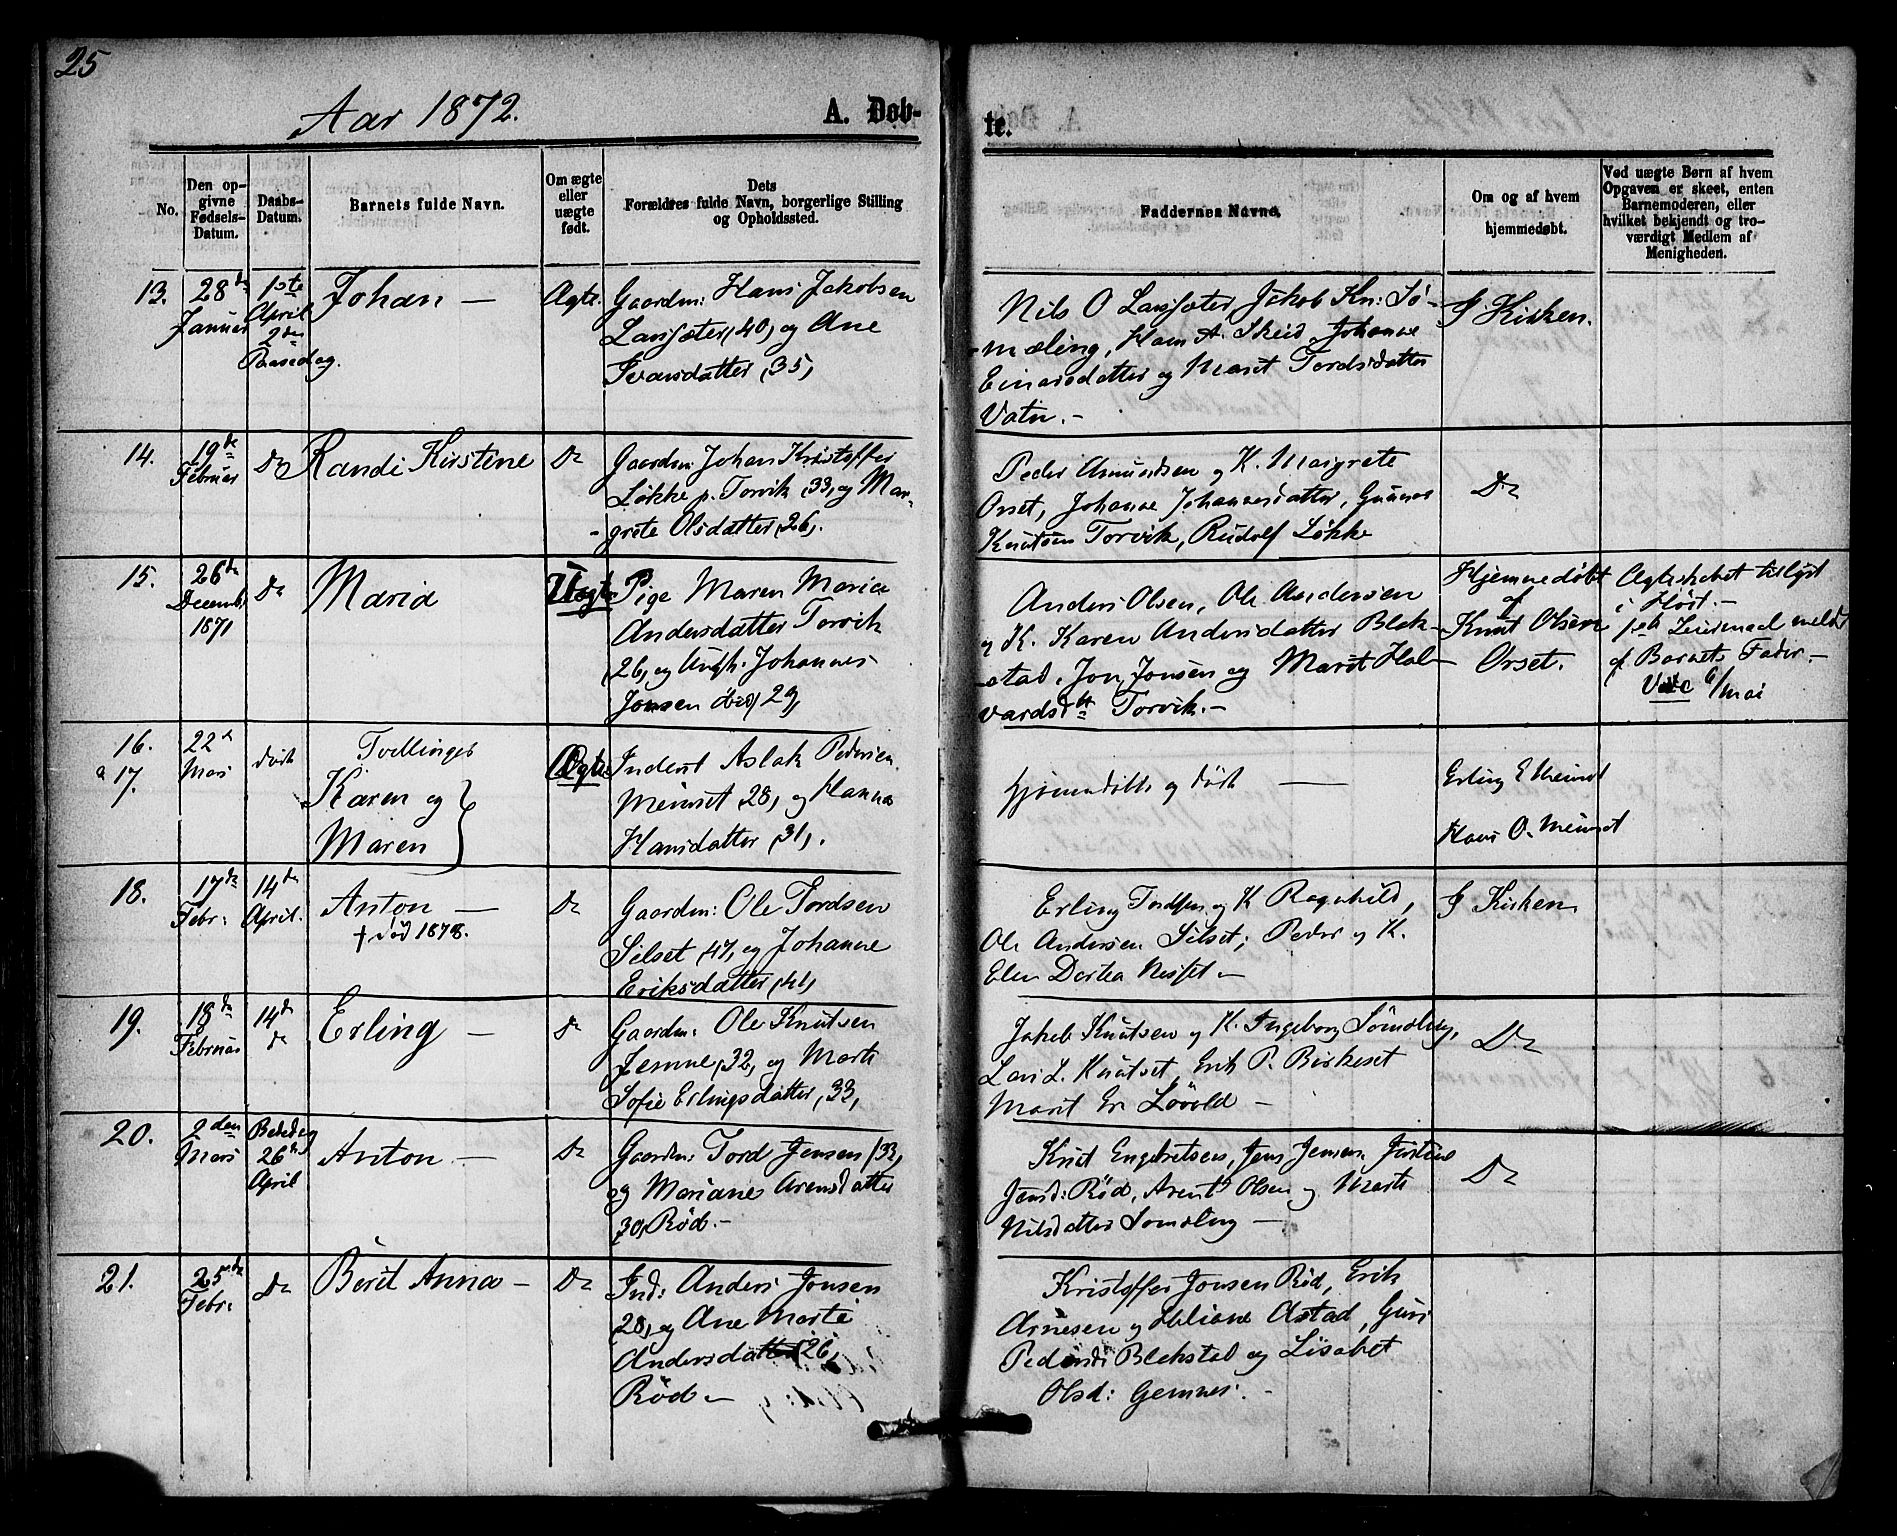 25
Aar 1872.
A. Døb-
te.
No.
Den op-
givne
Fødsels-
Datum.
Daabs-
Datum.
Barnets fulde Navn.
Om ægte
eller
uægte
født.
Dets
Forældres fulde Navn, borgerlige Stilling
og Opholdssted.
Faddernes Navne.
Om og af hvem
hjemmedøbt.
Ved uægte Børn af hvem
Opgaven er skeet, enten
Barnemoderen, eller
hvilket bekjendt og tro-
værdigt Medlem af
Menigheden.
13.
28de
Januar
1ste
April
2den
Paaskedag.
Johan —
Ægte.
Gaardm: Hans Jakobsen
Langsæter, 40, og Ane
Iversdatter, 35,
Nils O Langsæter, Jakob Kn: Sø-
mæling, Hans A. Skeid, Johanne
Einarsdatter og Marit Tordsdatter
Vatn. -
I Kirken.
14.
19de
Februar
Do
Randi Kirstine
Do
Gaardm: Johan Kristoffer
Løkke p. Torvik, 33, og Mar-
grete Olsdatter, 26,.
Peder Amundsen og K. Margrete
Orset, Johanne Johannesdatter, Gunnar
Knutsen Torvik, Rudolf Løkke
Do
15.
26de
Decemb.
1871
Do
Maria
Uægte
Pige Maren Maria
Andersdatter Torvik
26, og Ungk. Johannes
Jonsen ibid, 29,
Anders Olsen, Ole Andersen
og K. Karen Andersdatter Blek-
stad, Jon Jonsen og Marit Hal-
vardsdtr Torvik. -
Hjemmedøbt
af
Knut Olsen
Orset.
Ægteskabet tillyst
i Høst. -
1ste Leiermaal meldt
af Barnets Fader. -
Vacc 6/mai
16.
& 17.
22de
Mars
død
Tvillinger
Karen og
Maren
Ægte
Inderst Aslak Pedersen
Meinset, 28, og Hanna
Hansdatter, 31,.
hjemmedøbte og døde —
Erling E Meinset
Hans O. Meinset
18.
17de
Febr.
14de
April.
Anton —
† død 1878.
Do
Gaardm: Ole Tordsen
Silset, 47, og Johanne
Eriksdatter, 41,
Erling Tordsen og K Ragnhild,
Ole Andersen Silset; Peder og K.
Elen Dortea Nesset -
I Kirken
19.
18de
Februar
14de
do
Erling —
Do
Gaardm: Ole Knutsen
Jemne, 32, og Marte
Sofie Erlingsdatter, 33,
Jakob Knutsen og K. Ingeborg Sømeling,
Lars L. Knutset, Erik P. Birkeset
Marit Er Løvold —
Do
20.
2den
Mars
Bededag
26de
April
Anton. —
Do
Gaardm: Tord Jensen, 33,
og Mariane Arensdatter
30, Rød. -
Knut Engebretsen, Jens Jensen, Justine
Jensd: Rød, Arent Olsen og Marte
Nilsdatter Sømeling —
Do
21.
25de
Febr.
Do
Berit Anna —
Do
Ind: Anders Jonsen
28, og Ane Marte
Andersdatter, 26,
Rød -
Kristoffer Jonsen Rød, Erik
Arnesen og Heliane Astad, Guri
Pedersd: Blekstad og Lisabet
Olsd: Gemnes. -